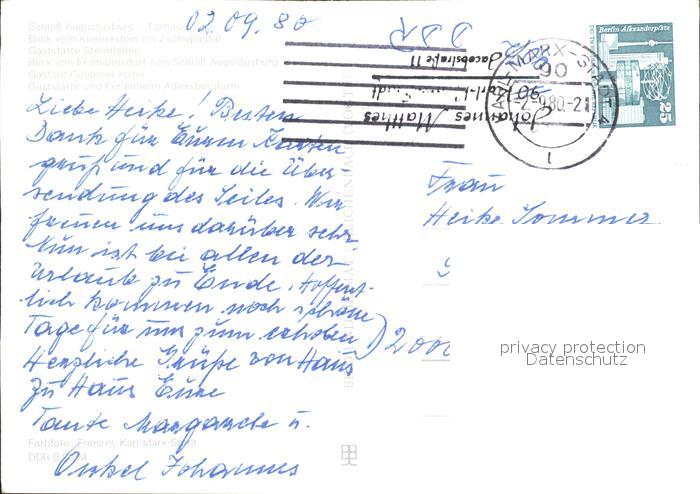 02.09.80
DDR
Schloß Augustusburg - Torhaus
Blick vom Kunnerstein ins Zschopautal
Gaststätte Sternmühle
Blick von Erdmannsdorf zum Schloß Augustusburg
Gasthof Goldener Hahn
Gaststätte und Ferienheim Adlersbergturm
Liebe Heike! Besten
Dank für Euern Karten
gruß und für die Über-
sendung des Seiles. Wir
freuen uns darüber sehr.
Nun ist bei allen der
Urlaub zu Ende. Hoffent-
lich kommen noch schöne
Tage für uns zum erholen
Herzliche Grüße von Haus
zu Haus Eure
Tante Margarete u.
Onkel Johannes
Farbfoto: Frenzel, Karl-Marx-Stadt
Johannes Matthes
Jacobstraße 11
KARL-MARX-STADT 4
90
-2.-9.80.-2
Berlin, Alexanderplatz
25
Frau
Heike Sommer
2000
privacy protection
Datenschutz